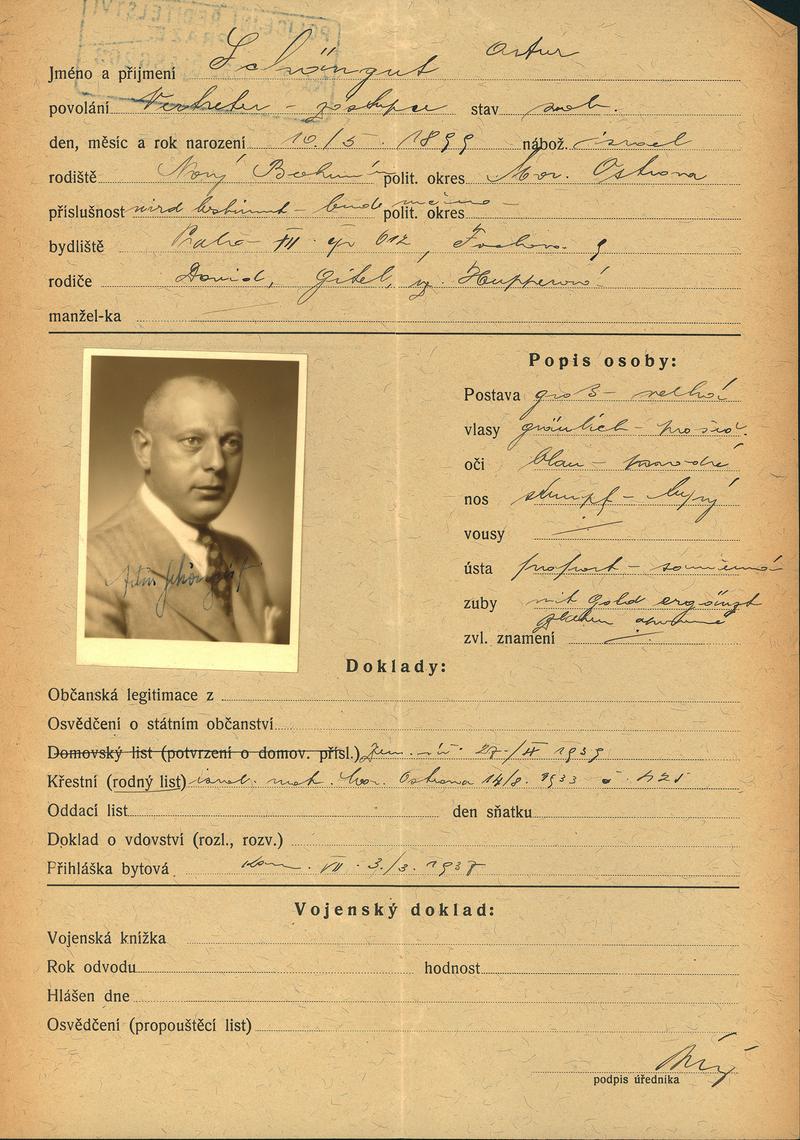 POLICEJNÍ ŘEDITELSTVÍ
Jméno a příjmení Schöngut Artur
povolání Vertreter - zástupce stav svob.
den, měsíc a rok narození 10./5. 1899 nábož. israel
rodiště Nový Bohumín polit. okres Mor. Ostrava
příslušnost wird bestimmt - bude polit. okres
bydliště Praha VII čp 612, Fochova 9
rodiče David, Gitel, Hupperová
manžel-ka
Popis osoby:
Postava groß - velká
vlasy gräulich - prošed.
oči blau - modré
nos stumpf - tupý
vousy
ústa proport - souměrná
zuby mit Gold ergänzt
zlatem
zvl. znamení
Artur Schöngut
Doklady:
Občanská legitimace z
Osvědčení o státním občanství
Domovský list (potvrzení o domov. přísl.) 1939
Křestní (rodný list) israel. mat. Mor. Ostrava 14/8. 1933 č. 425
Oddací list den sňatku
Doklad o vdovství (rozl., rozv.)
Přihláška bytová kom. VII. 3./3. 1937
Vojenský doklad:
Vojenská knížka
Rok odvodu hodnost
Hlášen dne
Osvědčení (propouštěcí list)
podpis úředníka